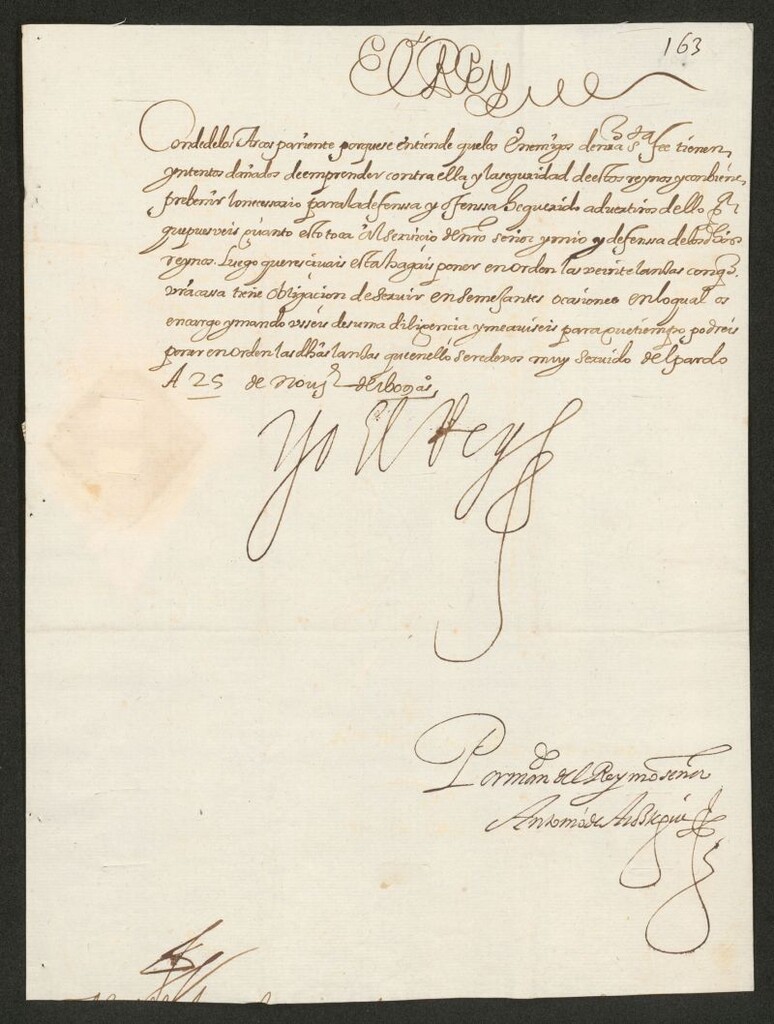 163
El Rey
Conde de los Arcos pariente porque se entiende que los Enemigos de nra sta fee tienen
yntentos dañados de emprender contra ella y la seguridad de estos reynos y conbiene
prebenir lo necessario para la defenssa y ofenssa he querido advertiros dello
que pues veis quanto esto toca al serui​cio de nro señor y mio y defensa de los dhos
reynos. Luego que resciuais esta hagais poner en orden las veinte lanzas con q
vra casa tiene obligacion de seruir en semejantes ocasiones en lo qual os
encargo y mando useis de suma diligencia y me auiseis para que tiempo podreis
poner en orden las dhas lanzas que en ello sere de vos muy seruido del pardo
A 25 de Nouie de
Yo El Rey
Por mando del Rey nro señor
Antonio de